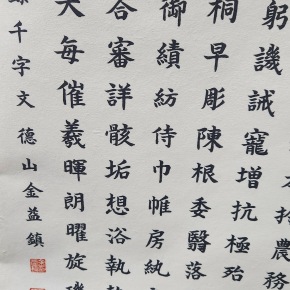 本於農務
躬譏誡寵增抗極殆
桐早彫陳根委翳落
御績紡侍巾帷房紈
審詳骸垢想浴執
矢每催羲暉朗曜旋璣
千字文 德山金益鎮